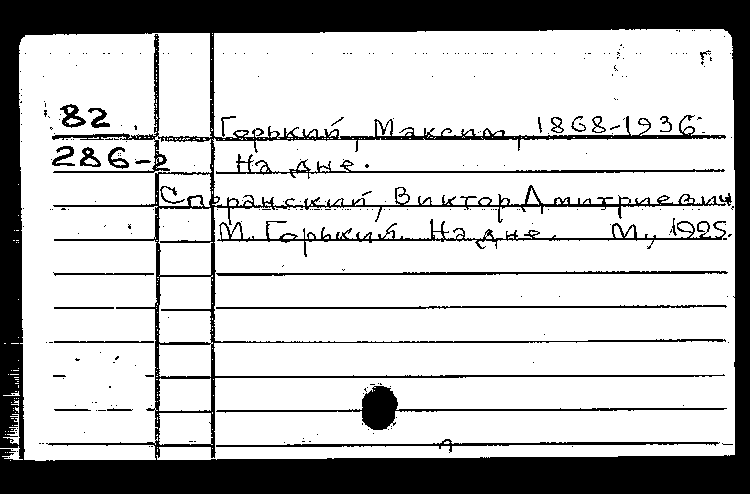 п
82 Горький, Максим, 1868-1936.
286-2 На дне.
Сперанский, Виктор Дмитриевич
М. Горький. На дне. М., 1925.